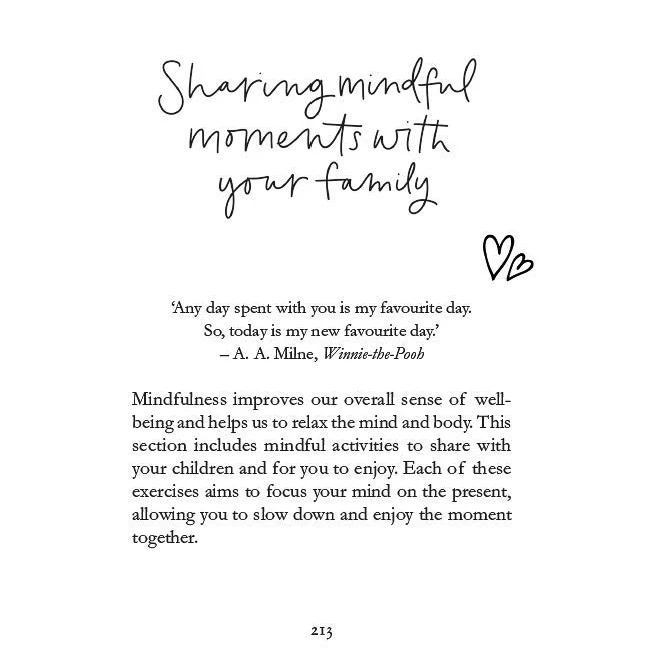 Sharing mindful
moments with
your family
‘Any day spent with you is my favourite day.
So, today is my new favourite day.’
– A. A. Milne, Winnie-the-Pooh
Mindfulness improves our overall sense of well-
being and helps us to relax the mind and body. This
section includes mindful activities to share with
your children and for you to enjoy. Each of these
exercises aims to focus your mind on the present,
allowing you to slow down and enjoy the moment
together.
213